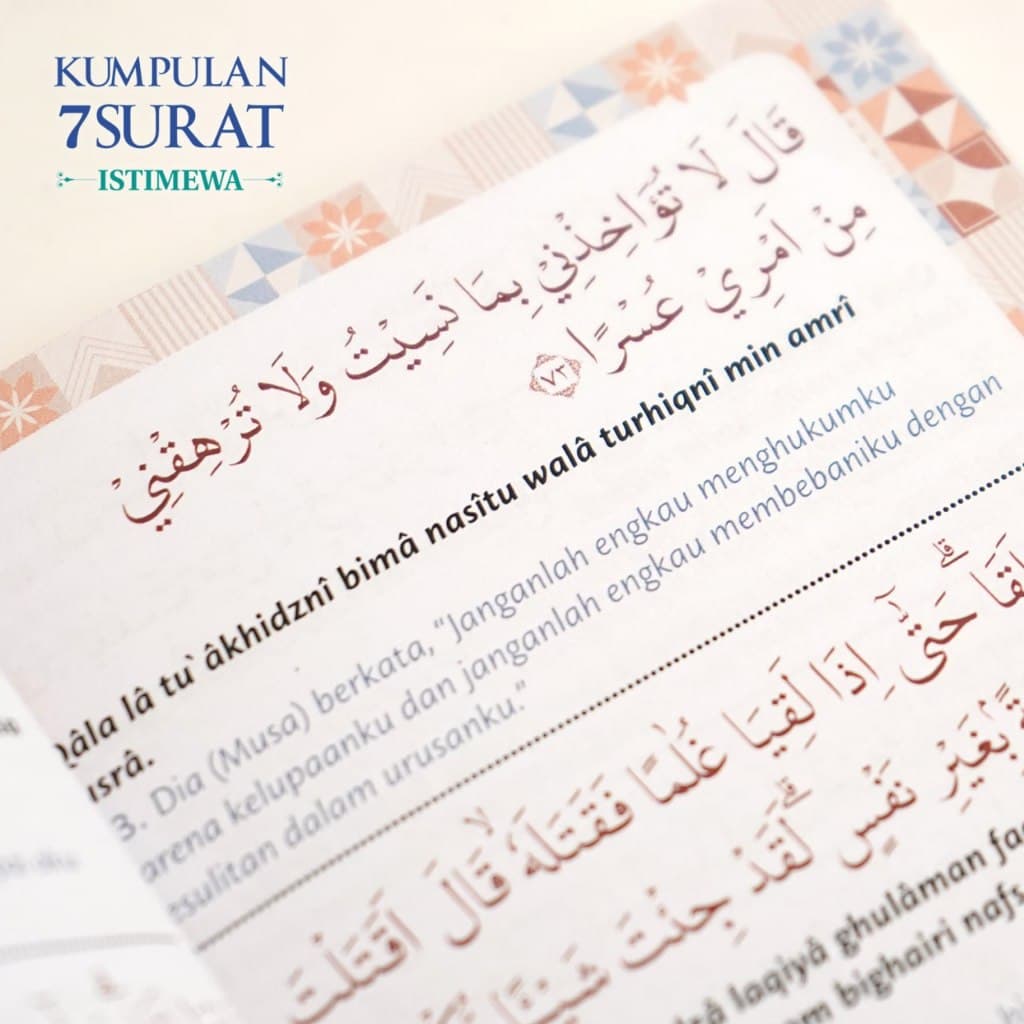 KUMPULAN
7SURAT
ISTIMEWA
قَالَ لَا تُؤَاخِذْنِيْ بِمَا نَسِيْتُ وَلَا تُرْهِقْنِيْ
مِنْ اَمْرِيْ عُسْرًا ٧٣
qâla lâ tu`âkhidznî bimâ nasîtu walâ turhiqnî min amrî
usrâ.
3. Dia (Musa) berkata, “Janganlah engkau menghukumku
arena kelupaanku dan janganlah engkau membebaniku dengan
esulitan dalam urusanku.”
حَتّٰىٓ اِذَا لَقِيَا غُلٰمًا فَقَتَلَهٗۙ قَالَ اَقَتَلْتَ
بِغَيْرِ نَفْسٍۗ لَقَدْ جِئْتَ شَيْـًٔا
laqiyâ ghulâman
bighairi nafs